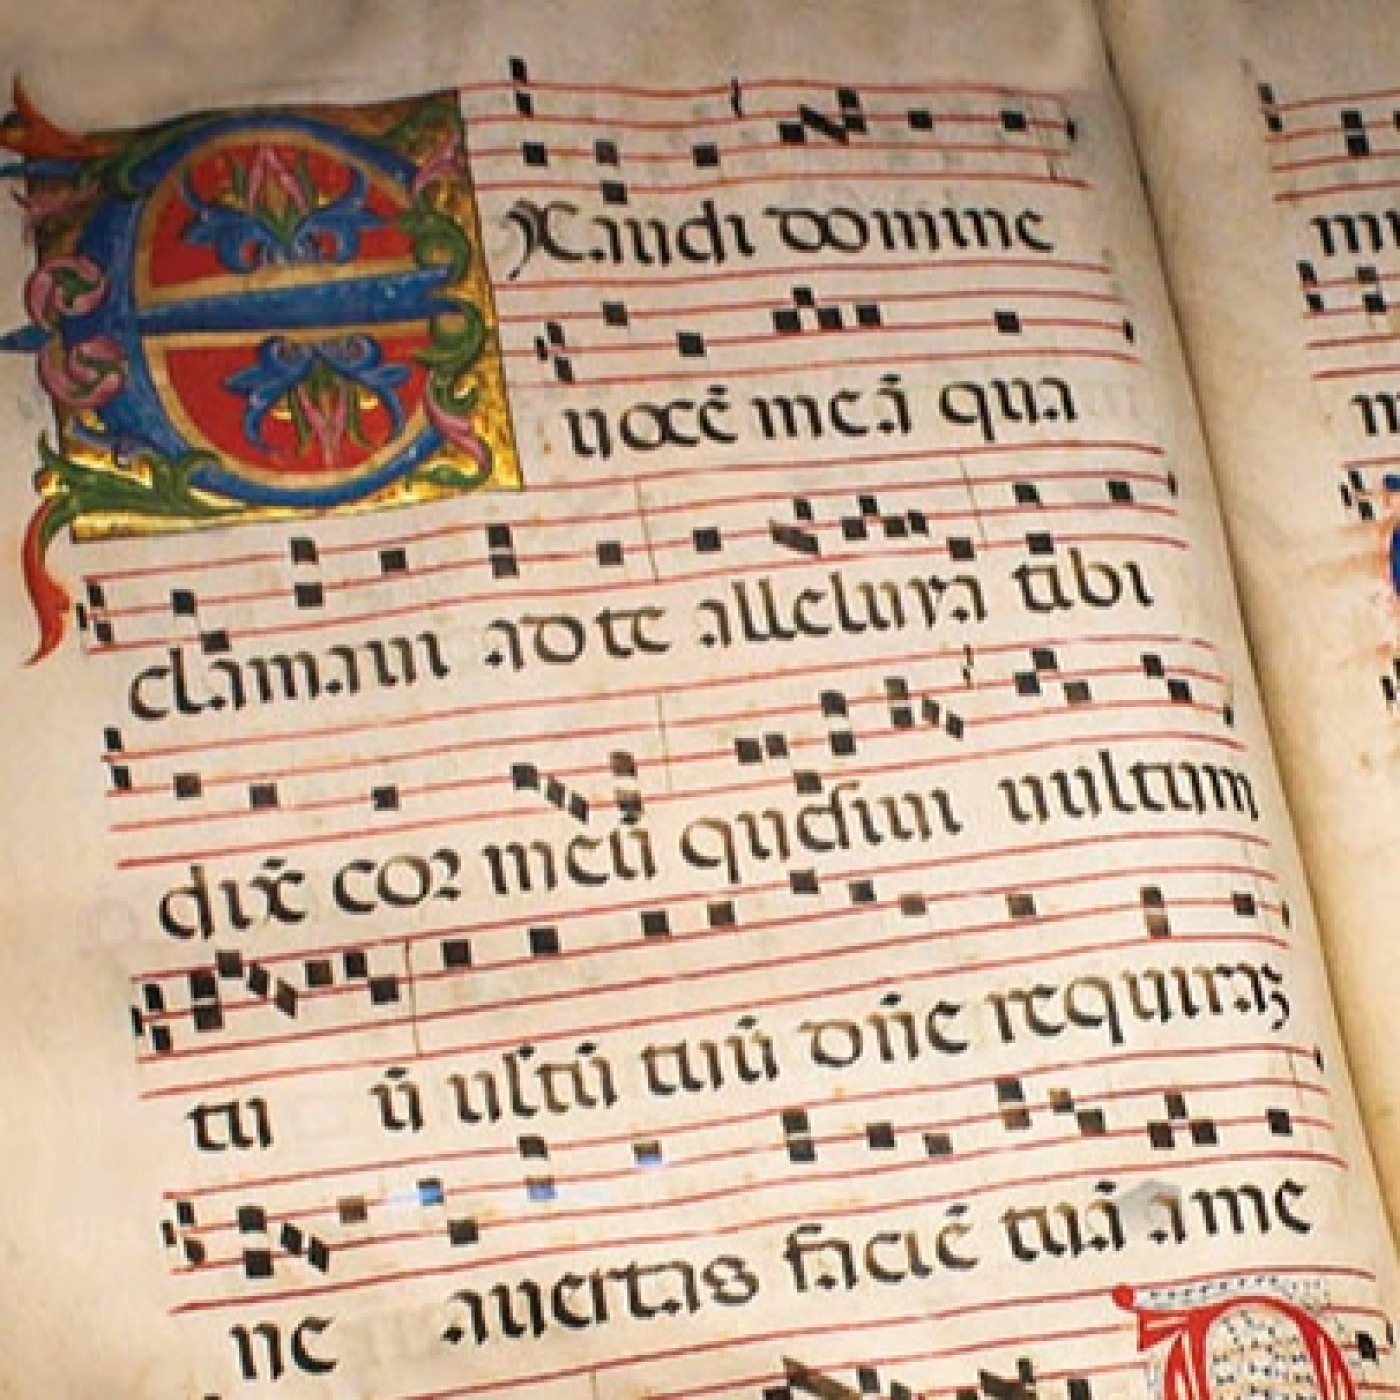 EXaudi domine
uocē meā qua
clamaui ad te alleluya tibi
dix̄ cor meū quesiui uultum
tu ū ultū tuū dn̄e requiraz
ne auertas faciē tuā a me